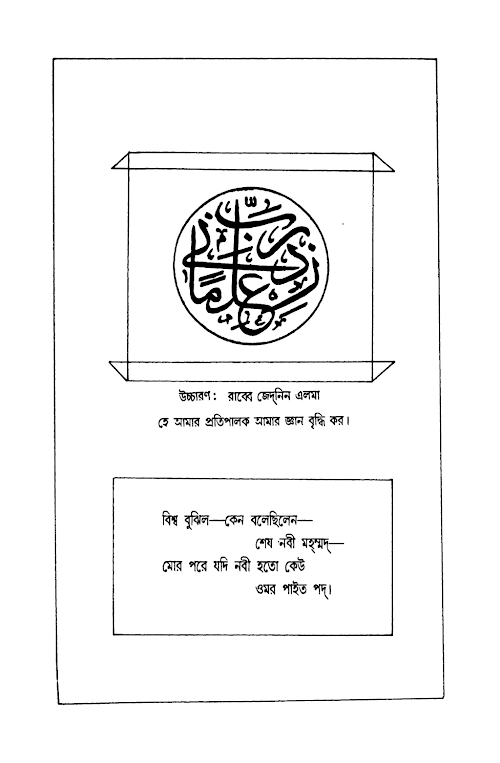 رب زدني علما
উচ্চারণ : রাব্বে জেদ্‌নিন এলমা
হে আমার প্রতিপালক আমার জ্ঞান বৃদ্ধি কর।
বিশ্ব বুঝিল—কেন বলেছিলেন—
শেষ নবী মহম্মদ্—
মোর পরে যদি নবী হতো কেউ
ওমর পাইত পদ্।